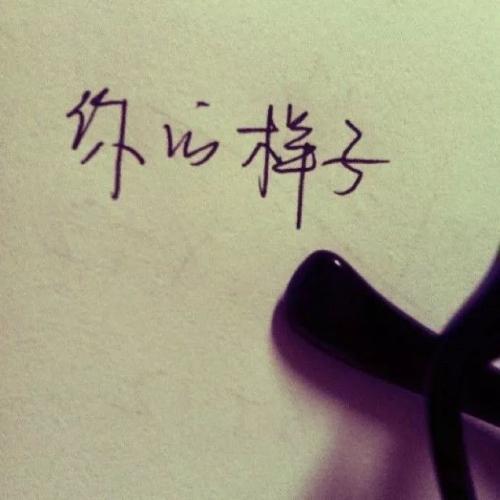 你的样子